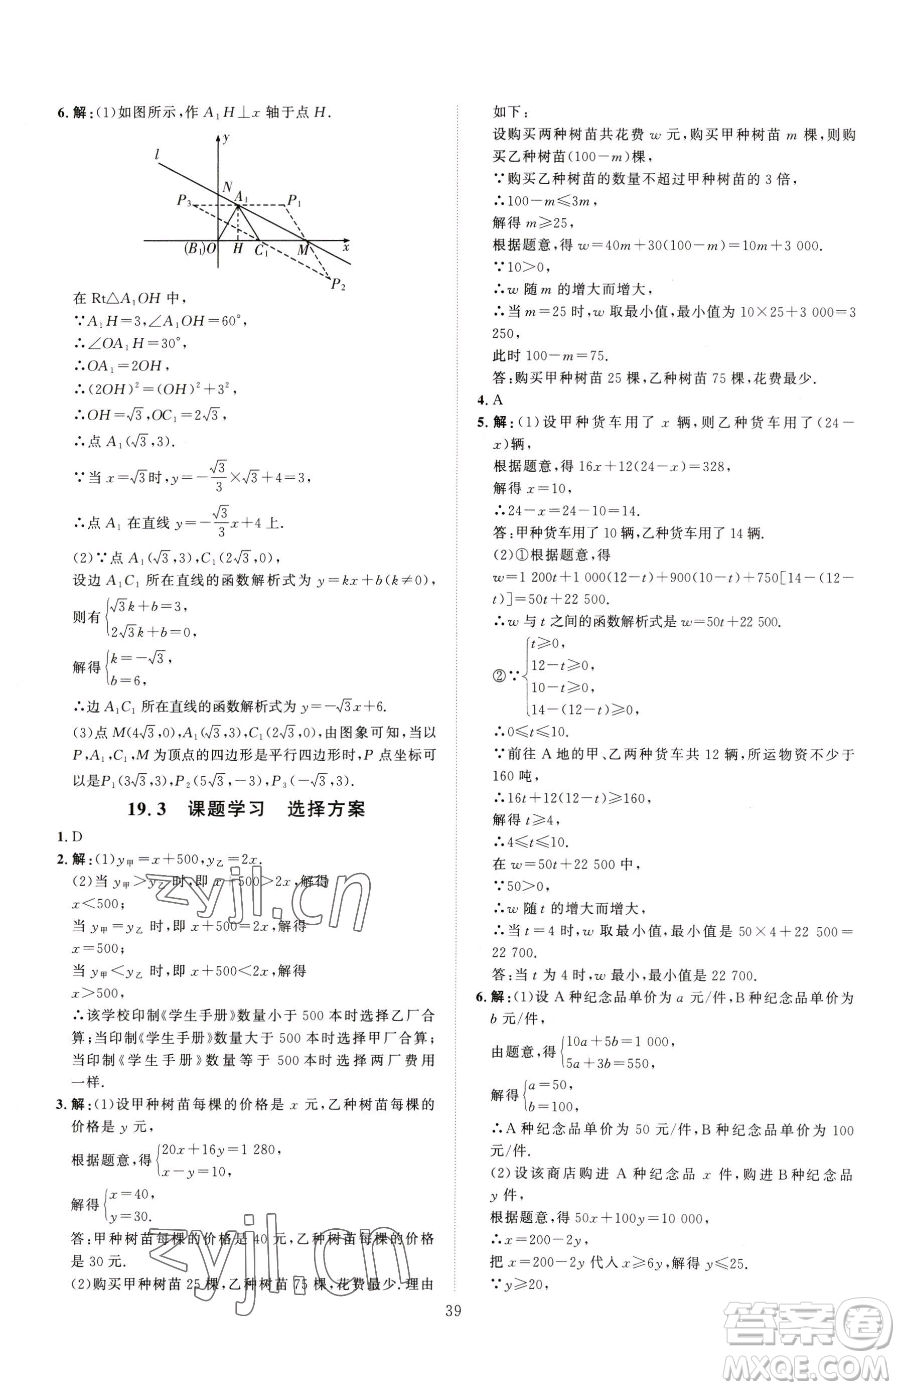 6. 解:(1)如图所示,作 A₁H⊥x 轴于点 H.
l
y
N
A₁
P₃
P₁
(B₁)
O
H
C₁
M
x
P₂
在 Rt△A₁OH 中,
∵A₁H=3,∠A₁OH=60°,
∴∠OA₁H=30°,
∴OA₁=2OH,
∴(2OH)²=(OH)²+3²,
∴OH=√3,OC₁=2√3,
∴点 A₁(√3,3).
∵当 x=√3时,y=-√3/3×√3+4=3,
∴点 A₁在直线 y=-√3/3x+4上.
(2)∵点 A₁(√3,3),C₁(2√3,0),
设边 A₁C₁ 所在直线的函数解析式为 y=kx+b(k≠0),
则有{√3k+b=3,
2√3k+b=0,
解得{k=-√3,
b=6.
∴边 A₁C₁ 所在直线的函数解析式为 y=-√3x+6.
(3)点 M(4√3,0),A₁(√3,3),由图象可知,当以
P,A₁,C₁,M 为顶点的四边形是平行四边形时,P 点坐标可
以是P₁(3√3,3),P₂(5√3,-3),P₃(-√3,3).
19.3 课题学习 选择方案
1. D
2. 解:(1)y甲=x+500,y乙=2x.
(2)当 y甲>y乙 时,即 x+500>2x,解得
x<500;
当 y甲=y乙 时,即 x+500=2x,解得
x=500;
当 y甲<y乙 时,即 x+500<2x,解得
x>500,
∴该学校印制《学生手册》数量小于 500 本时选择乙厂合
算;当印制《学生手册》数量大于 500 本时选择甲厂合算;
当印制《学生手册》数量等于 500 本时选择两厂费用
一样.
3. 解:(1)设甲种树苗每棵的价格是 x 元,乙种树苗每棵的
价格是 y 元,
根据题意,得{20x+16y=1 280,
x-y=10.
解得{x=40,
y=30.
答:甲种树苗每棵的价格是 40 元,乙种树苗每棵的价格
是 30 元.
(2)购买甲种树苗 25 棵,乙种树苗 75 棵,花费最少.理由
如下:
设购买两种树苗共花费 w 元,购买甲种树苗 m 棵,则购
买乙种树苗(100-m)棵,
∵购买乙种树苗的数量不超过甲种树苗的 3 倍,
∴100-m≤3m,
解得 m≥25,
根据题意,得 w=40m+30(100-m)=10m+3 000.
∵10>0,
∴w 随 m 的增大而增大,
∴当 m=25 时,w 取最小值,最小值为 10×25+3 000=3
250,
此时 100-m=75.
答:购买甲种树苗 25 棵,乙种树苗 75 棵,花费最少.
4. A
5. 解:(1)设甲种货车用了 x 辆,则乙种货车用了(24-
x)辆,
根据题意,得 16x+12(24-x)=328,
解得 x=10,
∴24-x=24-10=14.
答:甲种货车用了 10 辆,乙种货车用了 14 辆.
(2)①根据题意,得
w=1 200t+1 000(12-t)+900(10-t)+750[14-(12-
t)]=50t+22 500.
∴w 与 t 之间的函数解析式是 w=50t+22 500.
②∵{t≥0,
12-t≥0,
10-t≥0,
14-(12-t)≥0,
∴0≤t≤10.
∵前往 A 地的甲、乙两种货车共 12 辆,所运物资不少于
160 吨,
∴16t+12(12-t)≥160,
解得 t≥4,
∴4≤t≤10.
在 w=50t+22 500 中,
∵50>0,
∴w 随 t 的增大而增大,
∴当 t=4 时,w 取最小值,最小值是 50×4+22 500=
22 700.
答:当 t 为 4 时,w 最小,最小值是 22 700.
6. 解:(1)设 A 种纪念品单价为 a 元/件,B 种纪念品单价为
b 元/件,
由题意,得{10a+5b=1 000,
5a+3b=550,
解得{a=50,
b=100,
∴A 种纪念品单价为 50 元/件,B种纪念品单价为 100
元/件.
(2)设该商店购进 A 种纪念品 x 件,购进 B 种纪念品
y 件,
根据题意,得 50x+100y=10 000,
∴x=200-2y,
把 x=200-2y 代入 x≥6y,解得 y≤25.
∵y≥20,
39
zyjl.cn
zyjl.cn
答案圈
MXQE.COM